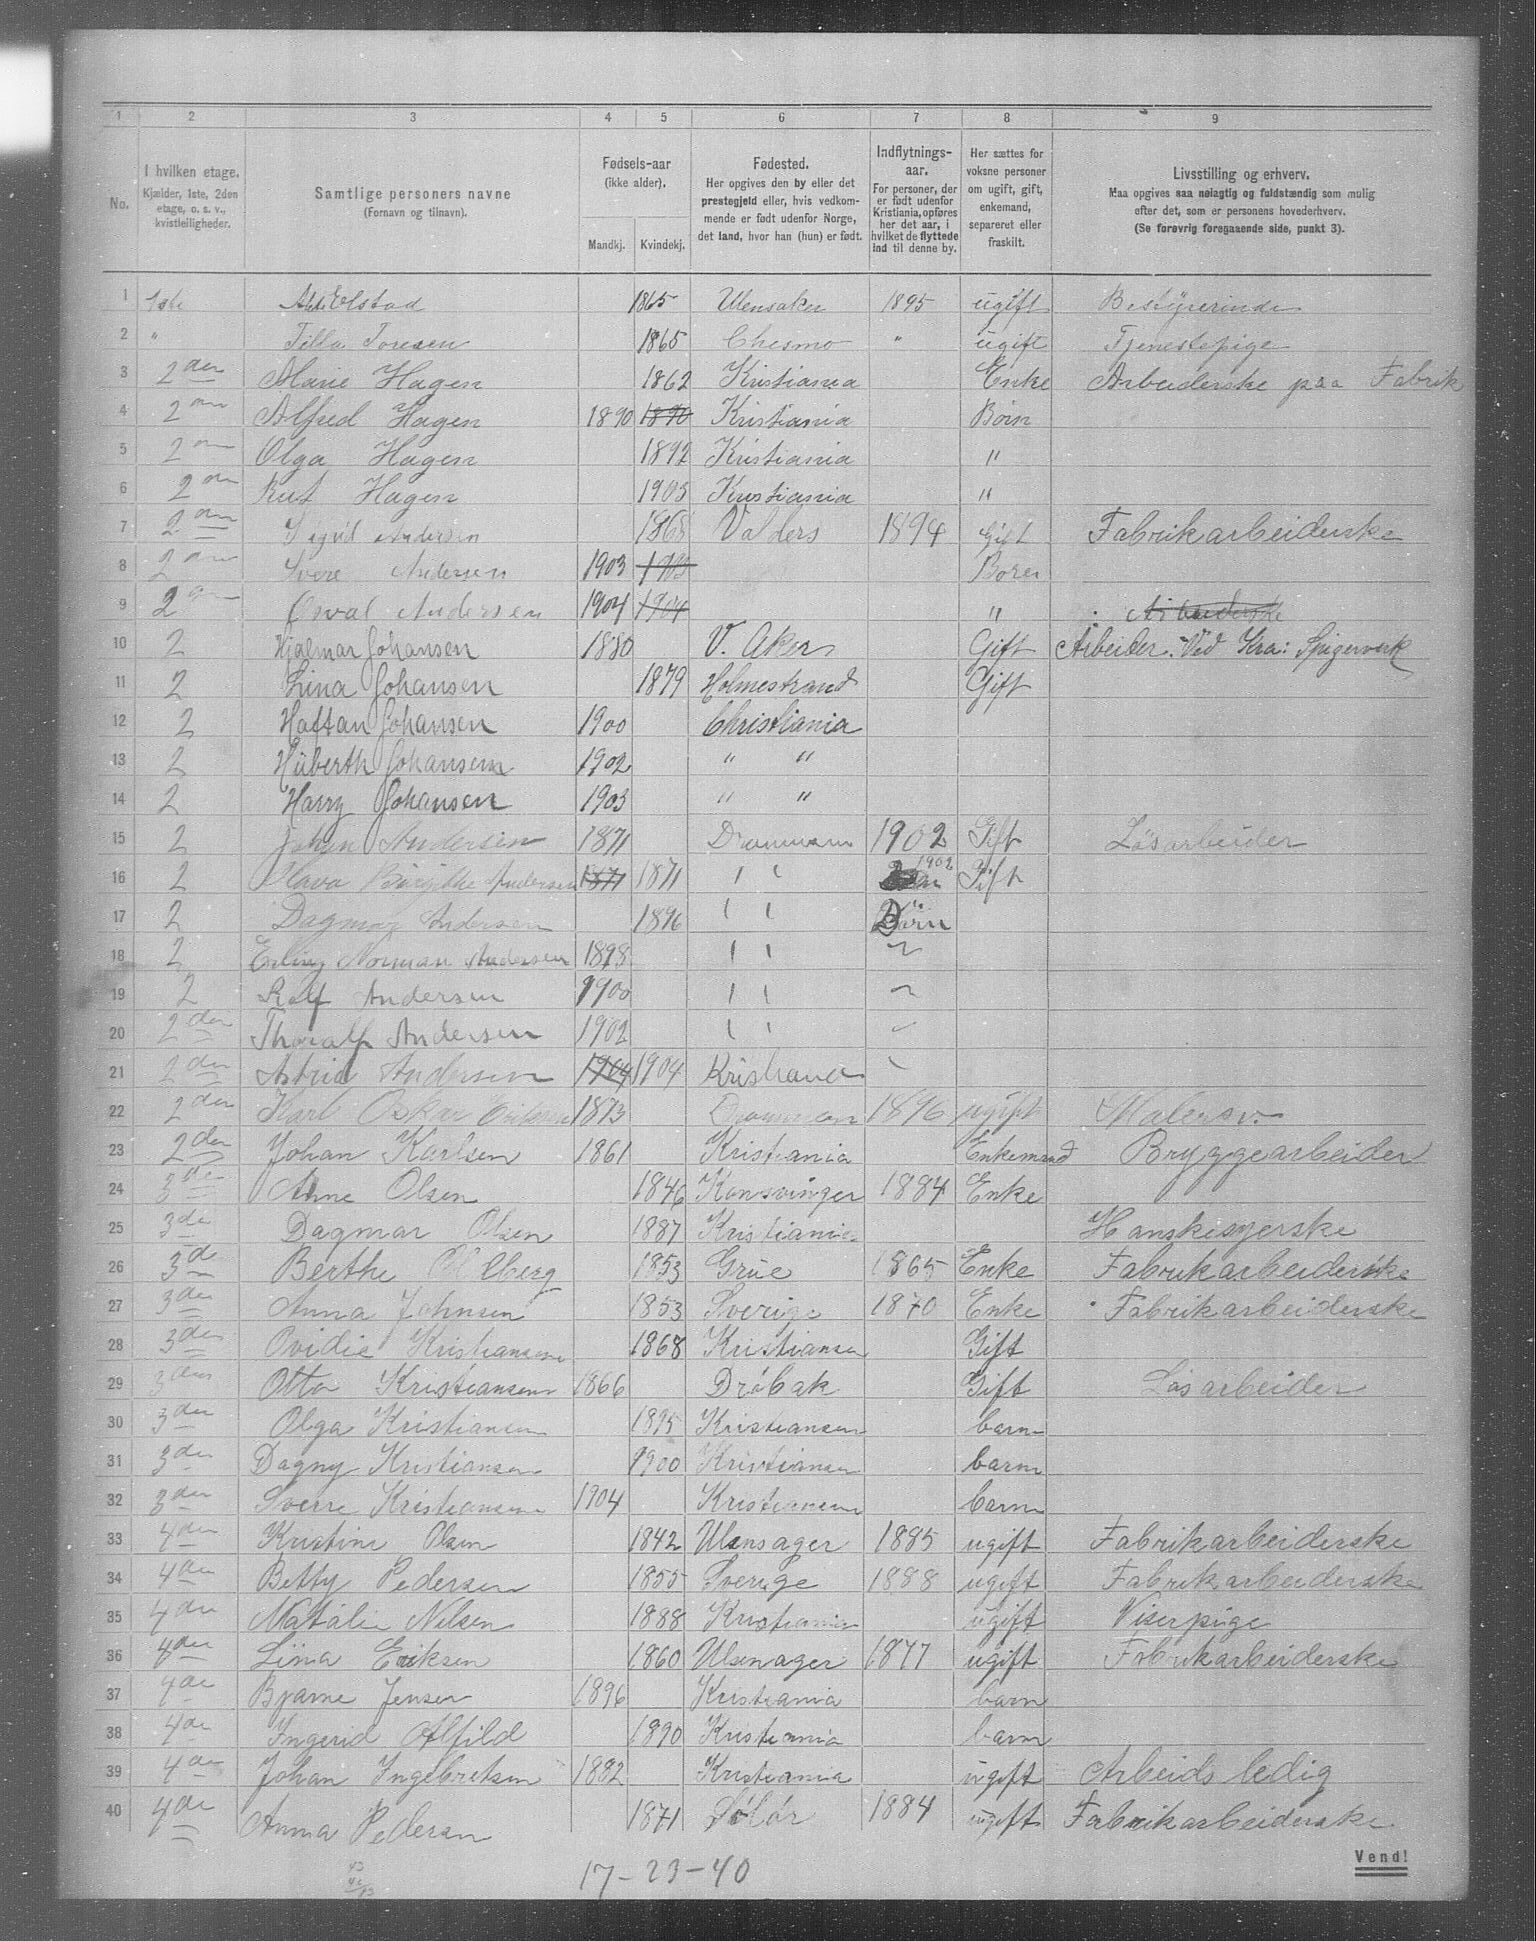 1 2 3 4 5 6 7 8 9
No.
I hvilken etage.
Kjælder, 1ste, 2den
etage, o. s. v.,
kvistleiligheder.
Samtlige personers navne
(Fornavn og tilnavn).
Fødsels-aar
(ikke alder).
Mandkj. Kvindekj.
Fødested.
Her opgives den by eller det
prestegjeld eller, hvis vedkom-
mende er født udenfor Norge,
det land, hvor han (hun) er født.
Indflytnings-
aar.
For personer, der
er født udenfor
Kristiania, opføres
her det aar, i
hvilket de flyttede
ind til denne by.
Her sættes for
voksne personer
om ugift, gift,
enkemand,
separeret eller
fraskilt.
Livsstilling og erhverv.
Maa opgives saa nøiagtig og fuldstændig som mulig
efter det, som er personens hovederhverv.
(Se forøvrig foregaaende side, punkt 3).
1 1ste Elstad 1865 Ulensaker 1895 ugift Bestyrerinde
2 " Tilla Toresen 1865 " ugift Tjenestepige
3 2den Marie Hagen 1862 Kristiania Enke Arbeiderske paa Fabrik
4 2den Alfred Hagen 1890 1890 Kristiania Børn
5 2den Olga Hagen 1892 Kristiania "
6 2den Rut Hagen 1905 Kristiania "
7 2den Sigrid Andersen 1868 Valders 1894 Gift Fabrikarbeiderske
8 2den Svere Andersen 1903 1903 Børen
9 2den Osval Andersen 1904 1904 " Arbeiderske
10 2 Hjalmar Johansen 1880 V. Aker Gift Arbeider. Ved Kra: Spigerverk
11 2 Lina Johansen 1879 Holmestrand Gift
12 2 Haftan Johansen 1900 Christiania
13 2 Hüberth Johansen 1902 " "
14 2 Harry Johansen 1903 " "
15 2 Johan Andersen 1871 Drammen 1902 Gift Løsarbeider
16 2 Birgithe Andersen 1871 1871 " " 1902 Gift
17 2 Dagmar Andersen 1896 " " Børn
18 2 Erling Norman Andersen 1898 " " "
19 2 Rolf Andersen 1900 " " "
20 2den Thoralf Andersen 1902 " " "
21 2den Astrid Andersen 1904 1904 Kristiania "
22 2den Karl Oskar Eriksen 1873 Drammen 1896 ugift Malersv.
23 2den Johan Karlsen 1861 Kristiania Enkemand Bryggearbeider
24 3den Anne Olsen 1846 Konsvinger 1884 Enke
25 3de Dagmar Olsen 1887 Kristiania Hanskesyerske
26 3de Berthe 1853 Grue 1865 Enke Fabrikarbeiderske
27 3den Anna Johnsen 1853 Sverige 1870 Enke Fabrikarbeiderske
28 3den Ovidie Kristiansen 1868 Kristiansen Gift
29 3den Otto Kristiansen 1866 Drøbak Gift Løsarbeider
30 3den Olga Kristiansen 1895 Kristiansen barn
31 3den Dagny Kristiansen 1900 Kristiansen barn
32 3den Sverre Kristiansen 1904 Kristiansen barn
33 4den Kristine Olsen 1842 Ulensager 1885 ugift Fabrikarbeiderske
34 4de Betty Pedersen 1855 Sverige 1888 ugift Fabrikarbeiderske
35 4de Natalie Nilsen 1888 Kristiania ugift Viserpige
36 4de Lina Eriksen 1860 Ulsenager 1877 ugift Fabrikarbeiderske
37 4de Bjarne Jensen 1896 Kristiania barn
38 4de Ingerid Alfild 1890 Kristiania barn
39 4de Johan Ingebretsen 1882 Kristiania ugift Arbeids ledig
40 4de Anna Pedersen 1871 Sølør 1884 ugift Fabrikarbeiderske
Vend!
17-23-40